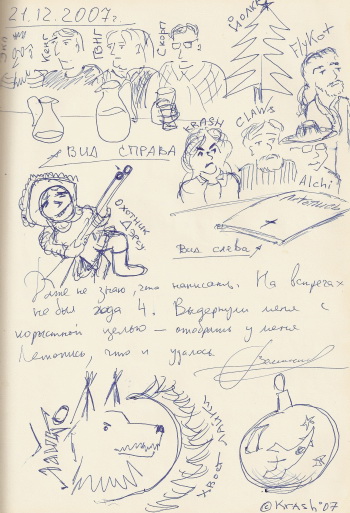 21.12.2007г.
Ёлка
Кенг
ГВНГ
Скорп
FlyKat
KRASH
CLAWS
Alchi
ВИД СПРАВА
Охотник
Летопись
Вид слева
Даже не знаю, что написать. На встречах
не был года 4. Выдернули меня с
корыстной целью – отобрать у меня
Летопись, что и удалось
хвост
©KRASH'07